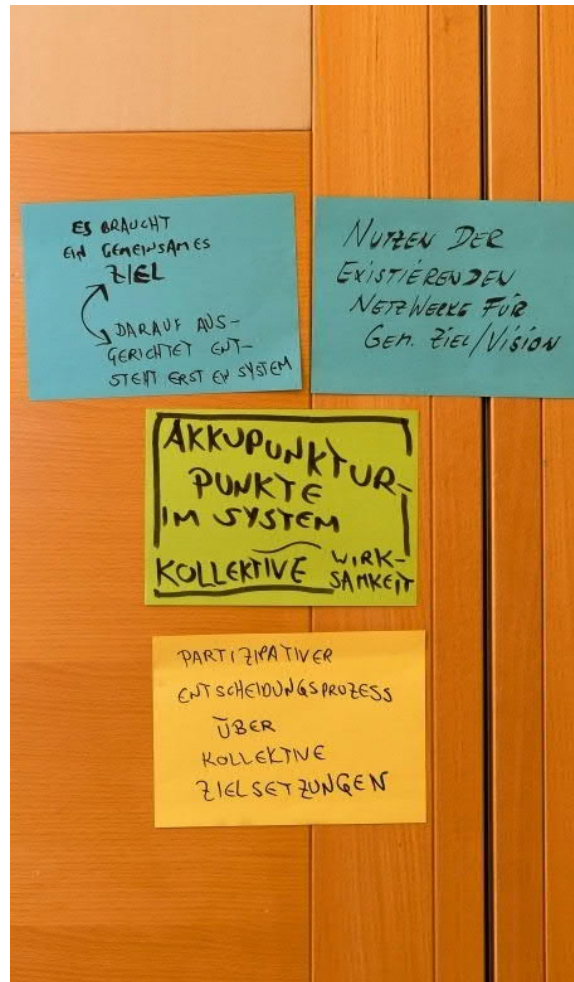 ES BRAUCHT
EIN GEMEINSAMES
ZIEL
DARAUF AUS-
GERICHTET ENT-
STEHT ERST EIN SYSTEM
NUTZEN DER
EXISTIERENDEN
NETZWERKE FÜR
GEM. ZIEL/VISION
AKKUPUNKTUR-
PUNKTE
IM SYSTEM
KOLLEKTIVE WIRK-
SAMKEIT
PARTIZIPATIVER
ENTSCHEIDUNGSPROZESS
ÜBER
KOLLEKTIVE
ZIELSETZUNGEN